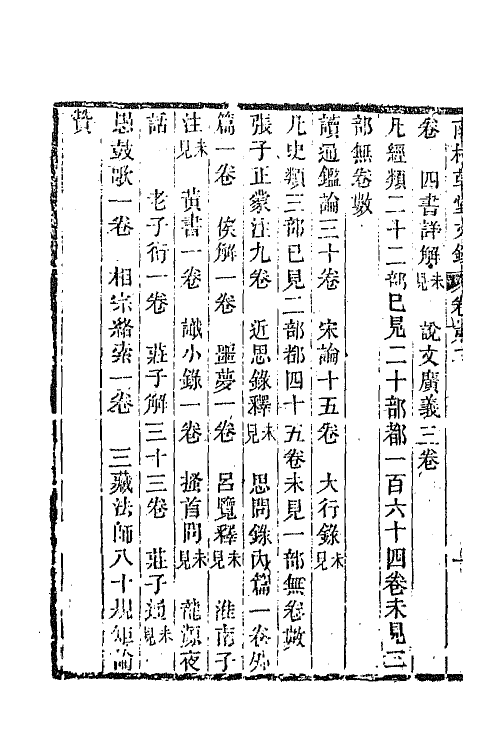 南村草堂文鈔 卷第十
卷 四書詳解未見 說文廣義三卷
凡經類二十二部已見二十部都一百六十四卷未見三
部無卷數
讀通鑑論三十卷 宋論十五卷 大行錄未見
凡史類三部已見二部都四十五卷未見一部無卷數
張子正蒙注九卷 近思錄釋未見 思問錄內篇一卷外
篇一卷 俟解一卷 噩夢一卷 呂覽釋未見 淮南子
注未見 黃書一卷 識小錄一卷 搔首問未見 龍源夜
話 老子衍一卷 莊子解三十三卷 莊子通未見
愚鼓歌一卷 相宗絡索一卷 三藏法師八十規矩論
贊